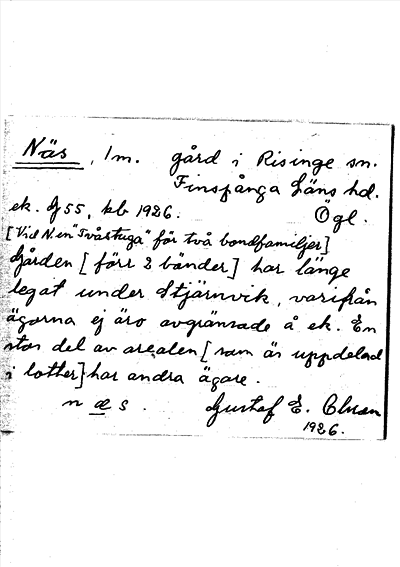 Näs, 1 m. gård i Risinge sn.
Finspånga Läns hd.
ek. Dj 55, kb 1926. Ögl.
[Vid N. en "tvåstuga" för två bondfamiljer]
Gården [förr 2 bönder] har länge
legat under Stjärnvik, varifrån
ägorna ej äro avgränsade å ek. En
stor del av arealen [som är uppdelad
i lotter] har andra ägare.
n æ s. Gustaf E. Olsson
1926.